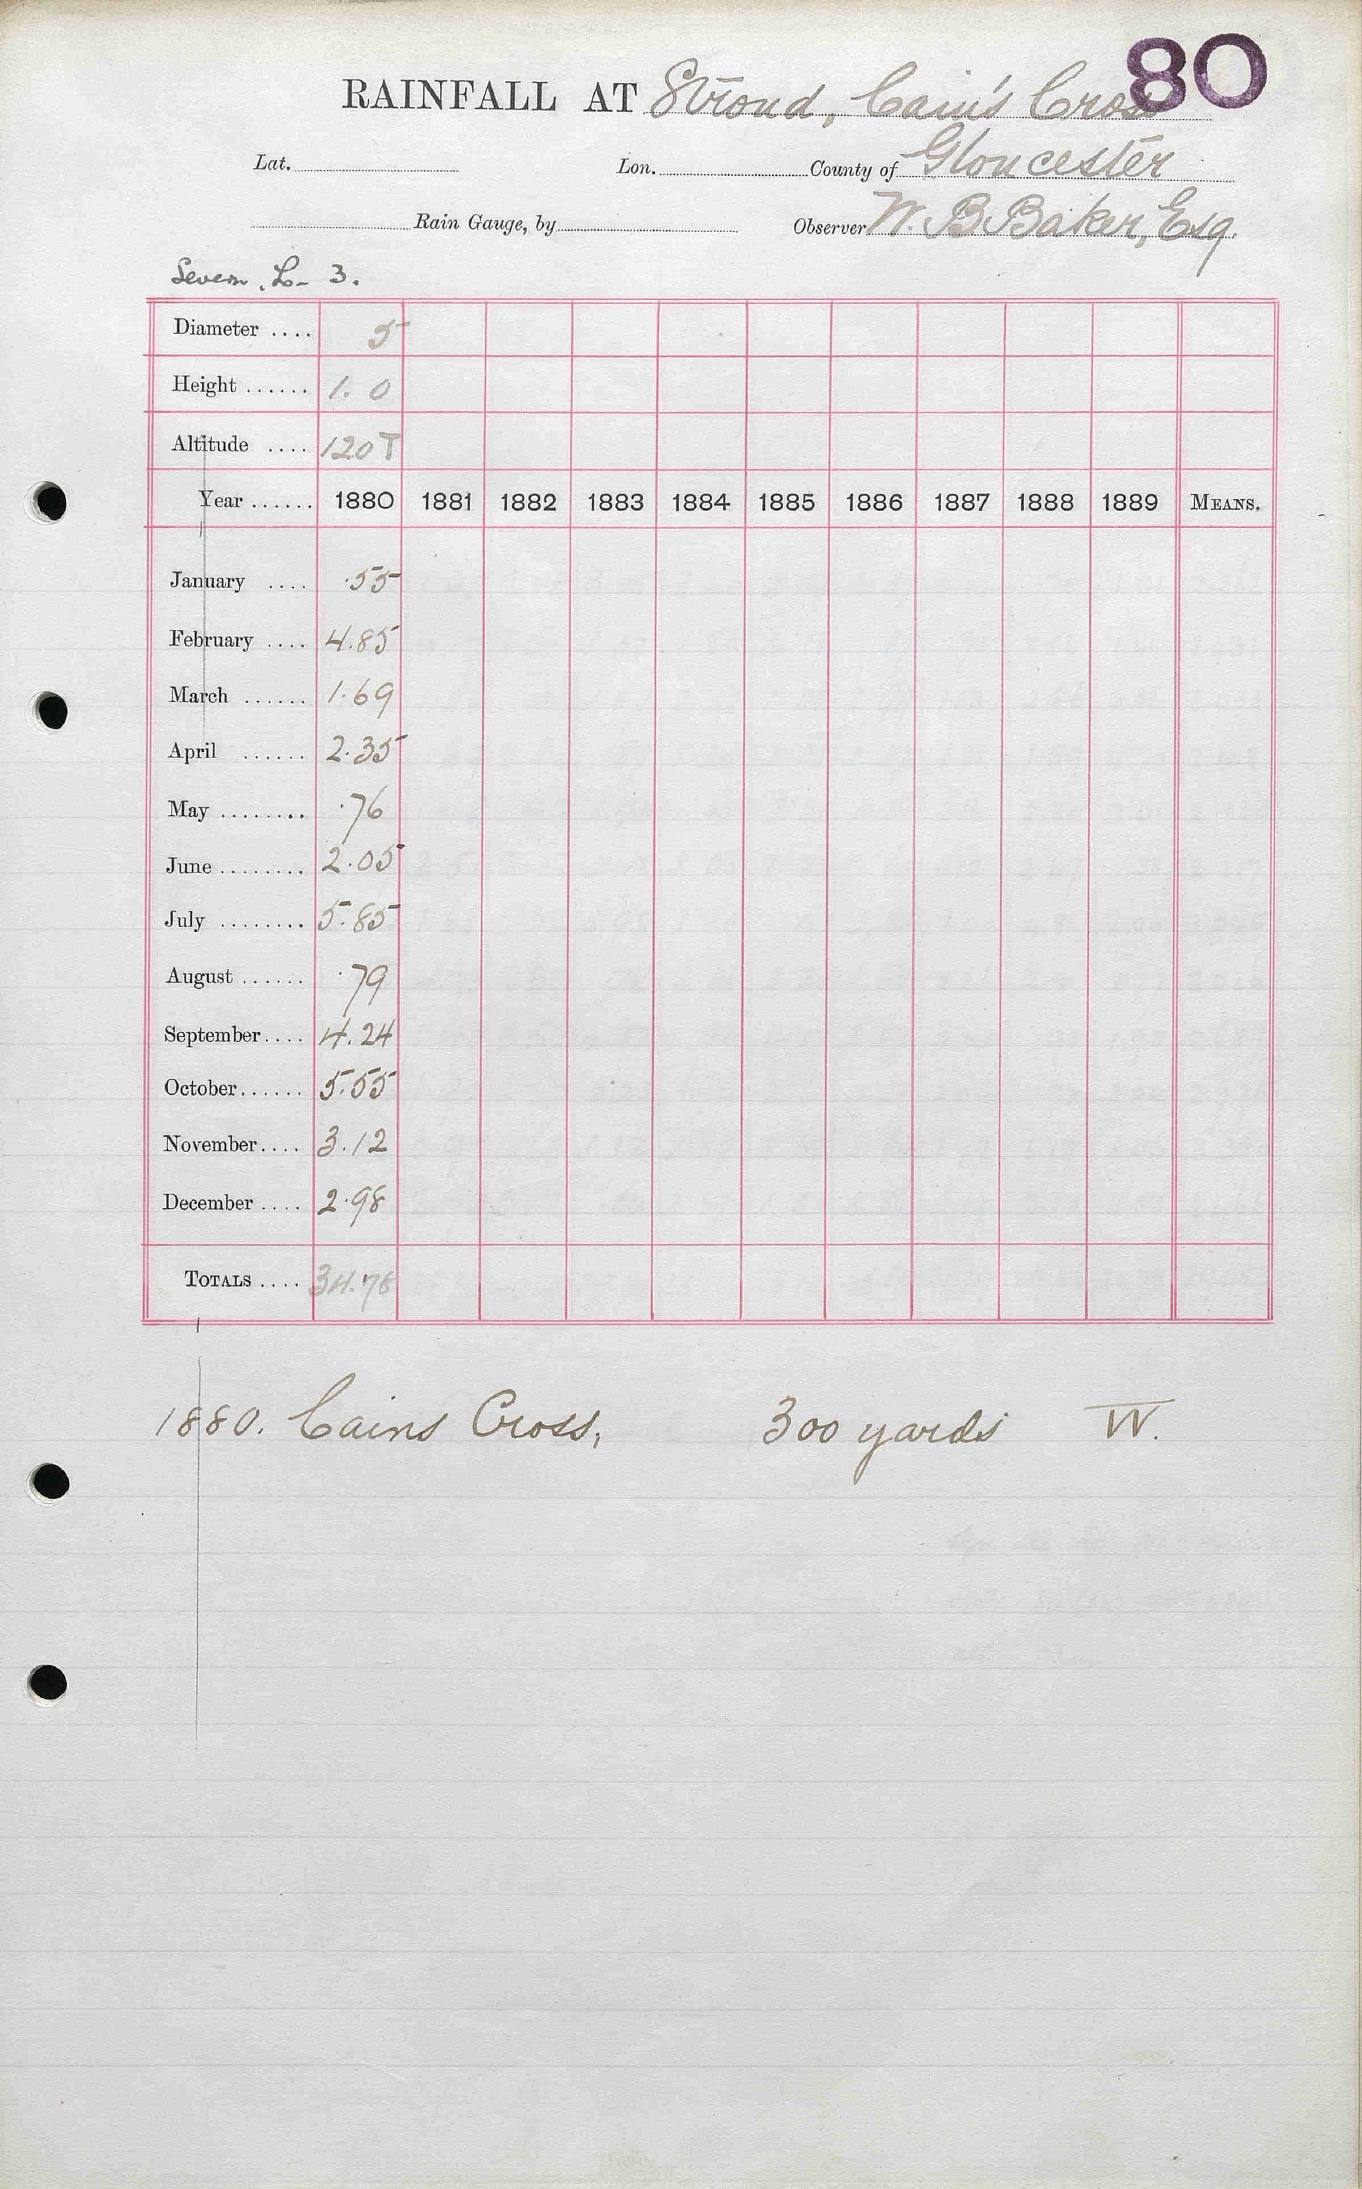 80
RAINFALL AT Stroud, Cain's Cross
Lat. Lon. County of Gloucester
Rain Gauge, by Observer W. B. Baker, Esq.
Severn. L- 3.
Diameter .... 5
Height ...... 1. 0
Altitude .... 120T
Year ...... 1880 1881 1882 1883 1884 1885 1886 1887 1888 1889 MEANS.
January .... .55
February .... 4.85
March ...... 1.69
April ...... 2.35
May ........ .76
June ........ 2.05
July ........ 5.85
August ...... .79
September .... 4.24
October ...... 5.55
November .... 3.12
December .... 2.98
TOTALS .... 34.78
1880. Cains Cross, 300 yards W.